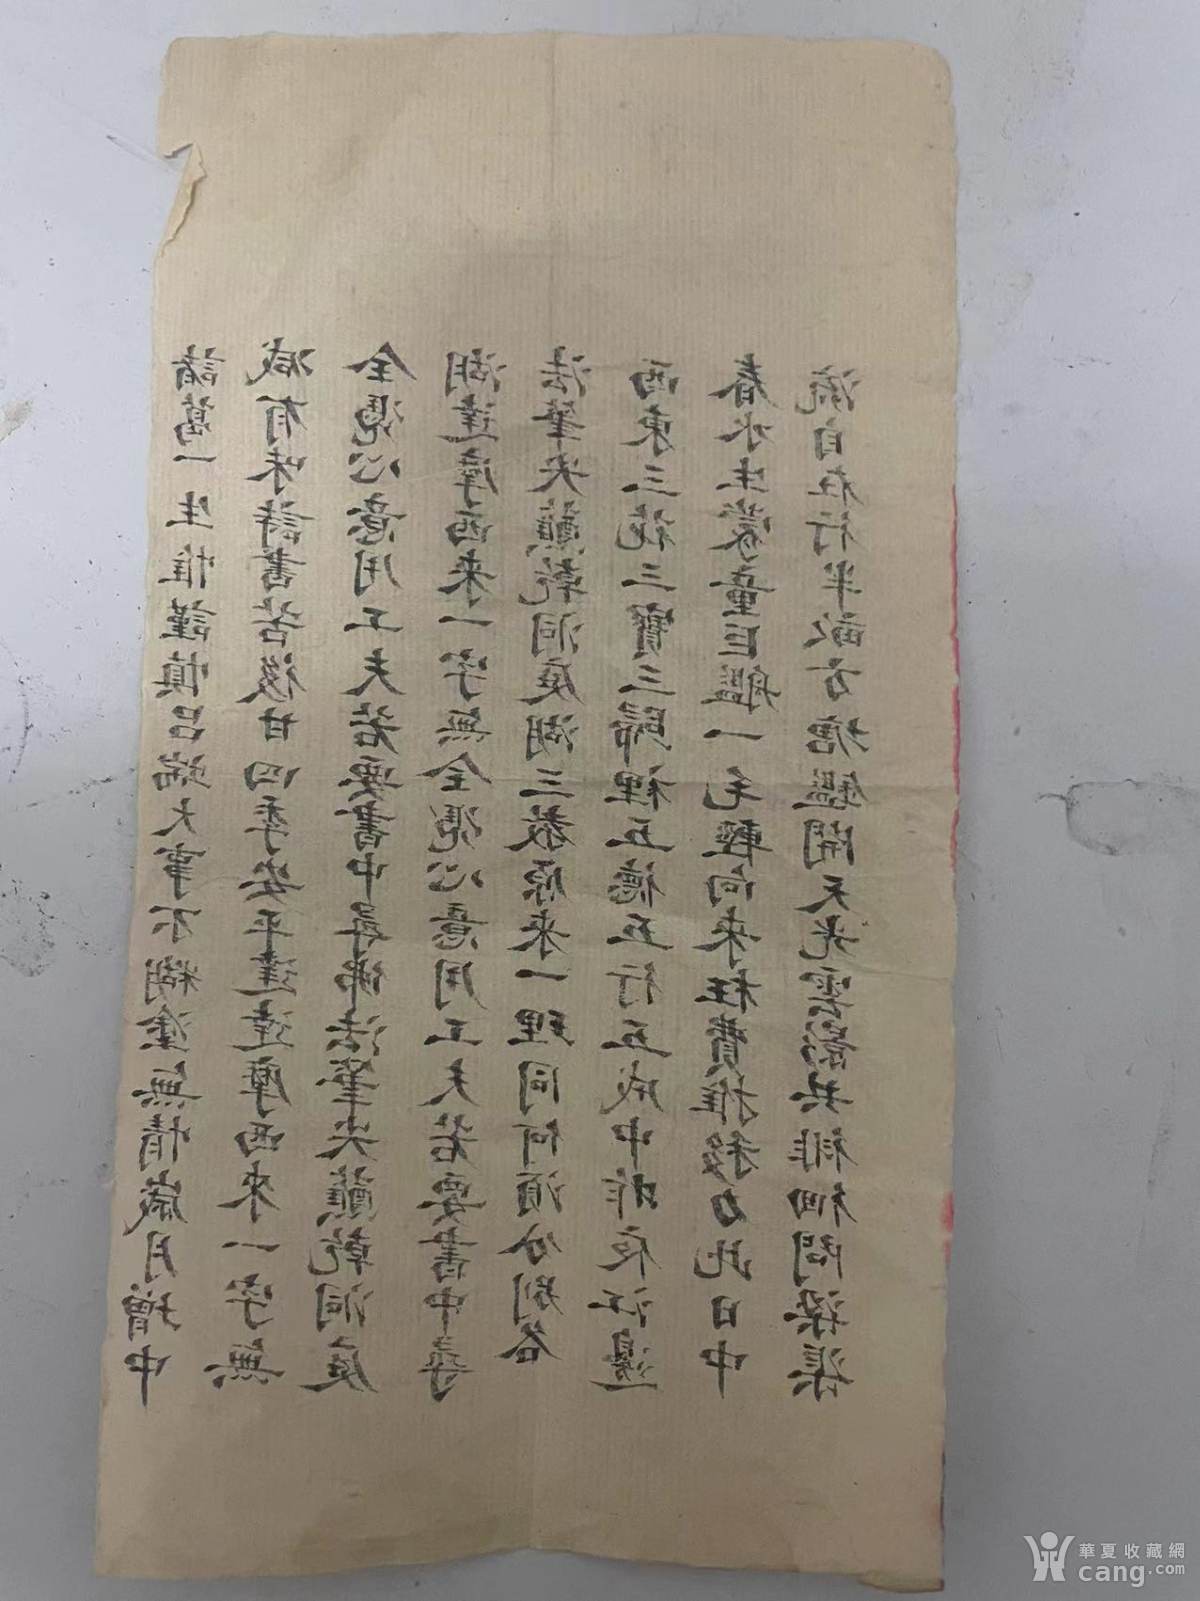 諸葛一生惟謹慎呂端大事不糊塗無情歲月增中
減有味詩書苦後甘四季安平達達摩西來一字無
全憑心意用工夫若要書中尋佛法筆尖蘸乾洞庭
湖達摩西来一字無全憑心意用工夫若要書中尋
法筆尖蘸乾洞庭湖三教原来一理同何須分別各
西東三花三寶三歸裡五德五行五成中昨夜江邊
春水生蒙童巨艦一毛輕向来枉費推移力此日中
流自在行半畝方塘鑑開天光雲影共徘徊問深渠
華夏收藏網
cang.com